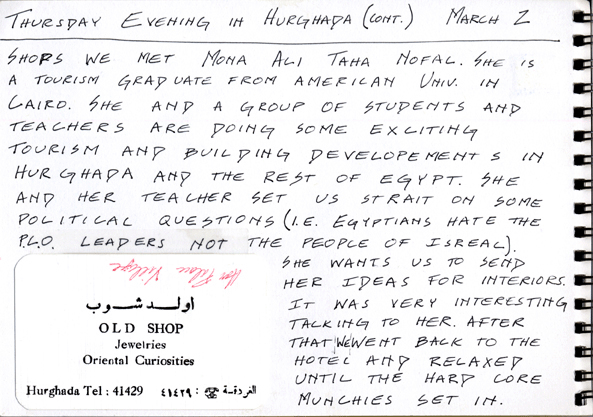 THURSDAY EVENING IN HURGHADA (CONT.) MARCH 2
SHOPS WE MET MONA ALI TAHA NOFAL. SHE IS
A TOURISM GRADUATE FROM AMERICAN UNIV. IN
CAIRO. SHE AND A GROUP OF STUDENTS AND
TEACHERS ARE DOING SOME EXCITING
TOURISM AND BUILDING DEVELOPEMENTS IN
HURGHADA AND THE REST OF EGYPT. SHE
AND HER TEACHER SET US STRAIT ON SOME
POLITICAL QUESTIONS (I.E. EGYPTIANS HATE THE
P.L.O. LEADERS NOT THE PEOPLE OF ISREAL).
SHE WANTS US TO SEND
HER IDEAS FOR INTERIORS.
IT WAS VERY INTERESTING
TALKING TO HER. AFTER
THAT WE WENT BACK TO THE
HOTEL AND RELAXED
UNTIL THE HARD CORE
MUNCHIES SET IN.
Village
اولد شوب
OLD SHOP
Jewelries
Oriental Curiosities
Hurghada Tel : 41429 الغردقة ☎ : ٤١٤٢٩